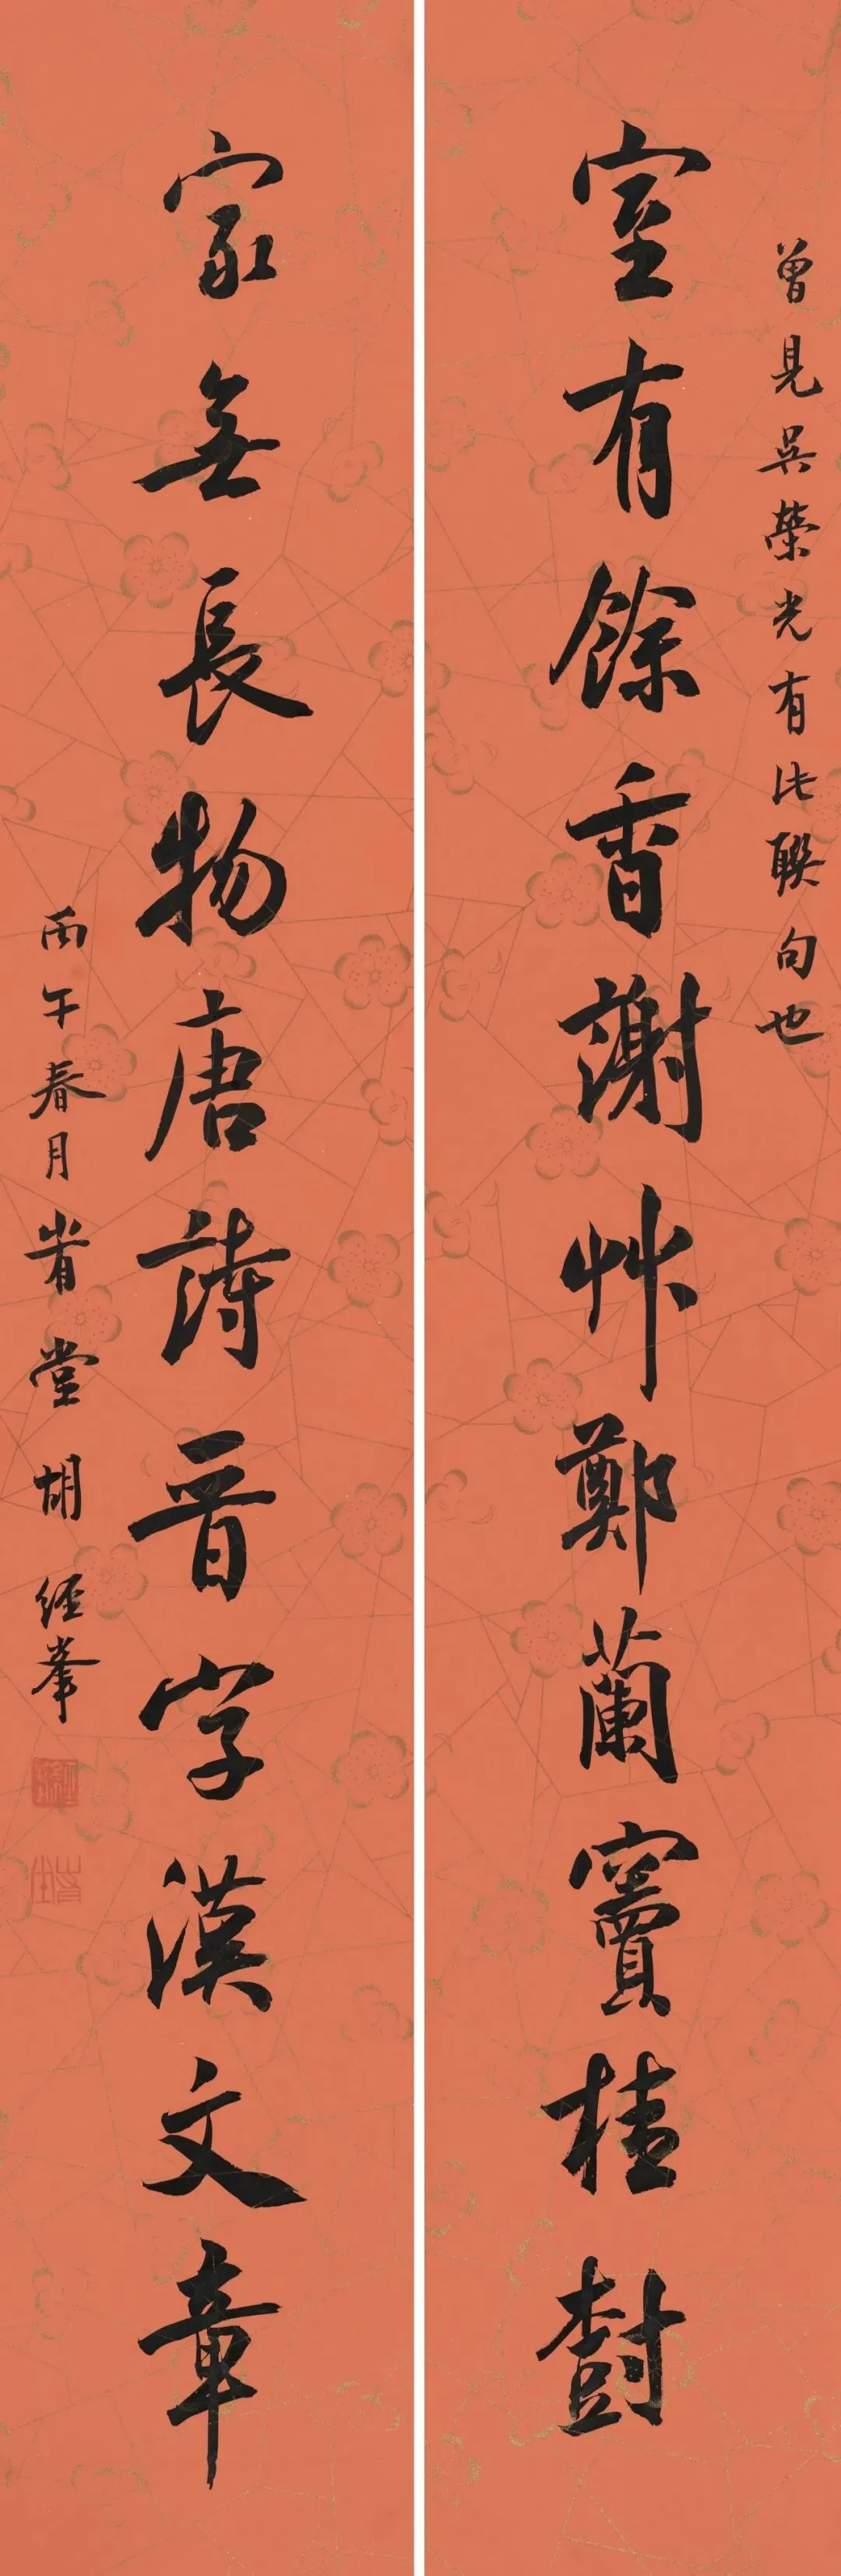 曾見吳榮光有此聯句也
室有餘香謝艸鄭蘭竇桂樹
家無長物唐詩晉字漢文章
丙午春月省堂胡經峯